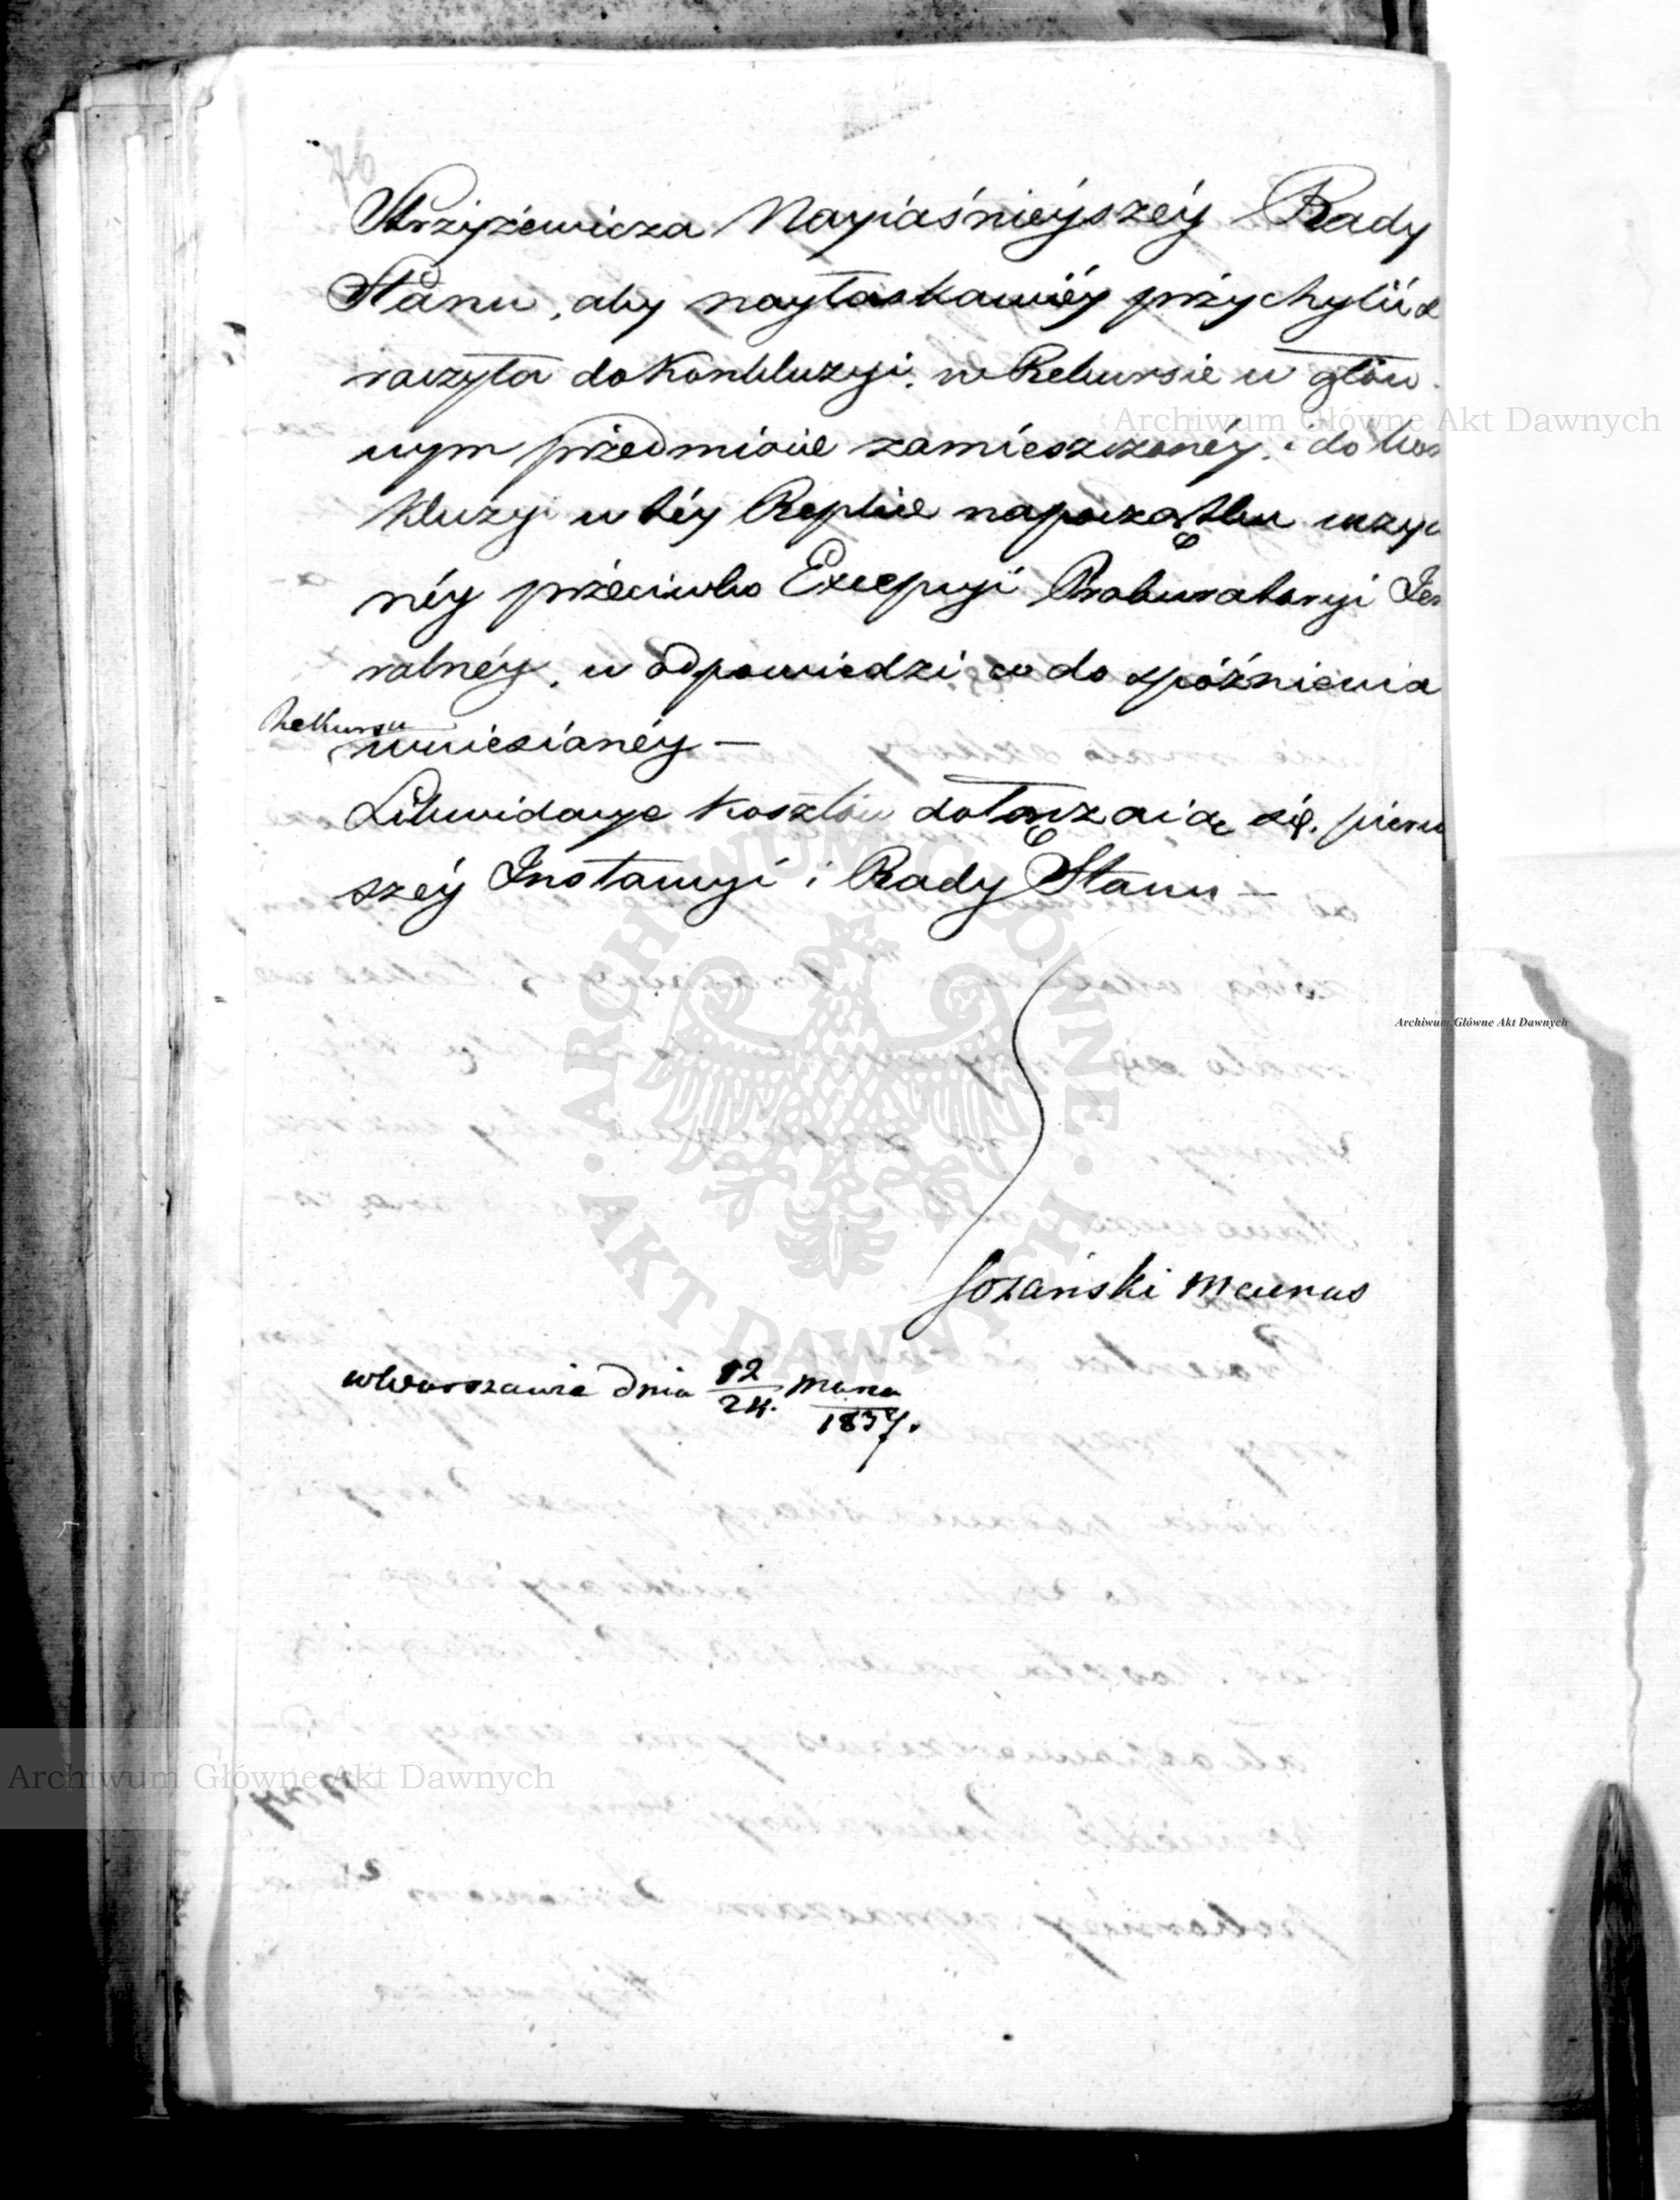 76
Skrzyżewicza Nayiaśnieyszéy Rady
Stanu, aby nayłaskawiéy przychylić
raczyła do Konkluzyi, w Rekursie w głów-
nym przedmiocie zamieszczonéy, i do Kon
kluzyi w téy Replice na początku uczyn
néy przeciwko Excepcyi Prokuratoryi Jen
ralnéy, w odpowiedzi co do spóźnienia
Rekursu
wniesionéy —
Likwidacye kosztów dołączaią się, pierw
széy Instancyi i Rady Stanu —
Łozański Mecenas
w Warszawie dnia 12/24. Marca 1837.
Archiwum Główne Akt Dawnych
Archiwum Główne Akt Dawnych
Archiwum Główne Akt Dawnych
ARCHIWUM GŁÓWNE · AKT DAWNYCH ·